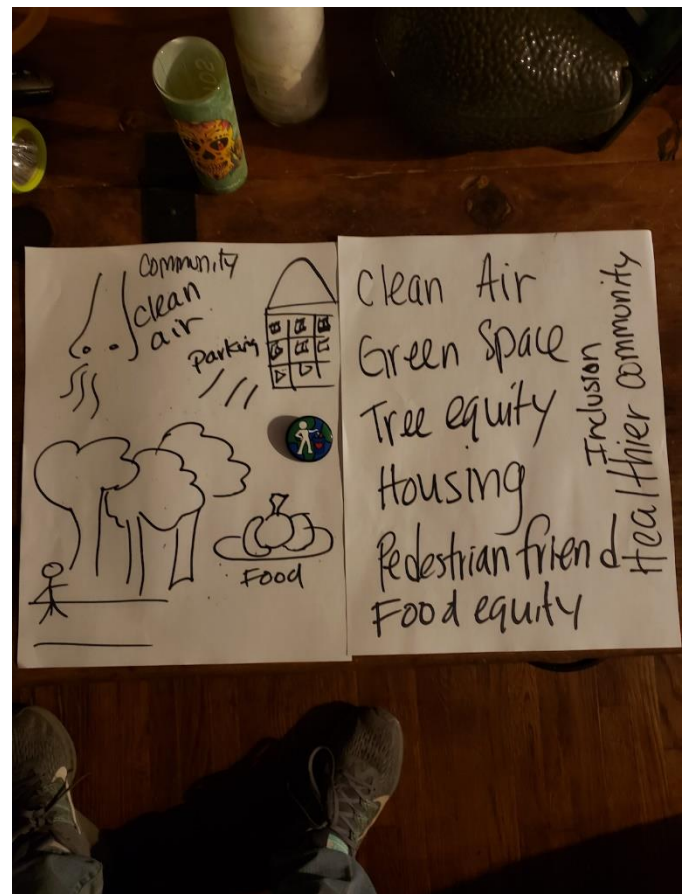 Community
clean
air
Parking
Food
Clean Air
Green Space
Tree equity
Housing
Pedestrian friend
Food equity
Inclusion
Healthier community